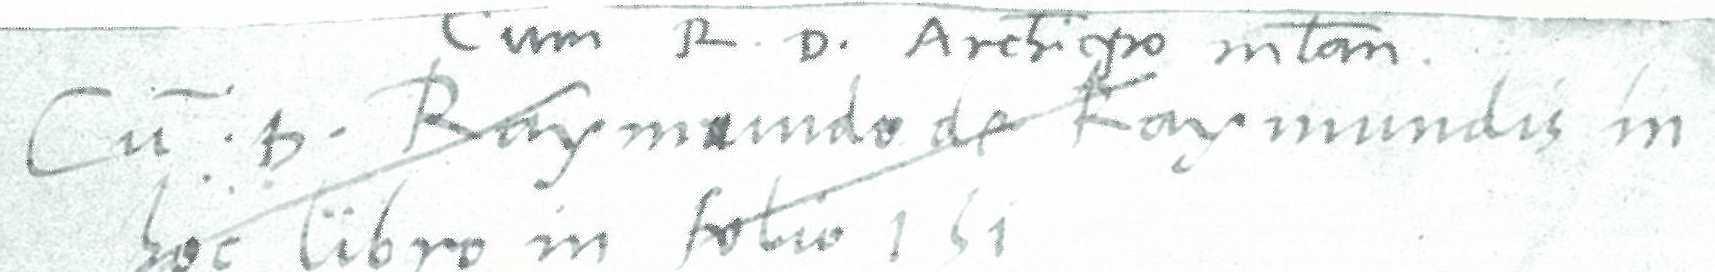 Cum R. D. Archiep̄o mtān.
Cū . D. Raymundo de Raymundis in
hoc libro in folio 151